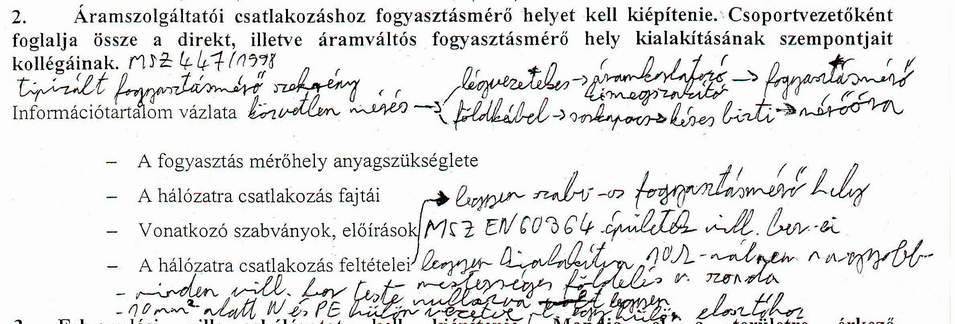 2. Áramszolgáltatói csatlakozáshoz fogyasztásmérő helyet kell kiépítenie. Csoportvezetőként
foglalja össze a direkt, illetve áramváltós fogyasztásmérő hely kialakításának szempontjait
kollégáinak. MSZ 447/1998
tipizált fogyasztásmérő szekrény légvezetékes → áramkorlátozó → fogyasztásmérő
kismegszakító
Információtartalom vázlata közvetlen mérés → földkábel → sorkapocs → késes bizti → mérőóra
– A fogyasztás mérőhely anyagszükséglete
– A hálózatra csatlakozás fajtái → legyen szabv-os fogyasztásmérő hely
– Vonatkozó szabványok, előírások MSZ EN 60364 épületek vill. ber-ei
– A hálózatra csatlakozás feltételei legyen kialakítva 10Ω-nál nem nagyobb
- minden vill. ber teste mesterséges földelés v. szonda
- 10mm² alatt N és PE külön vezetve legyen elosztóhoz